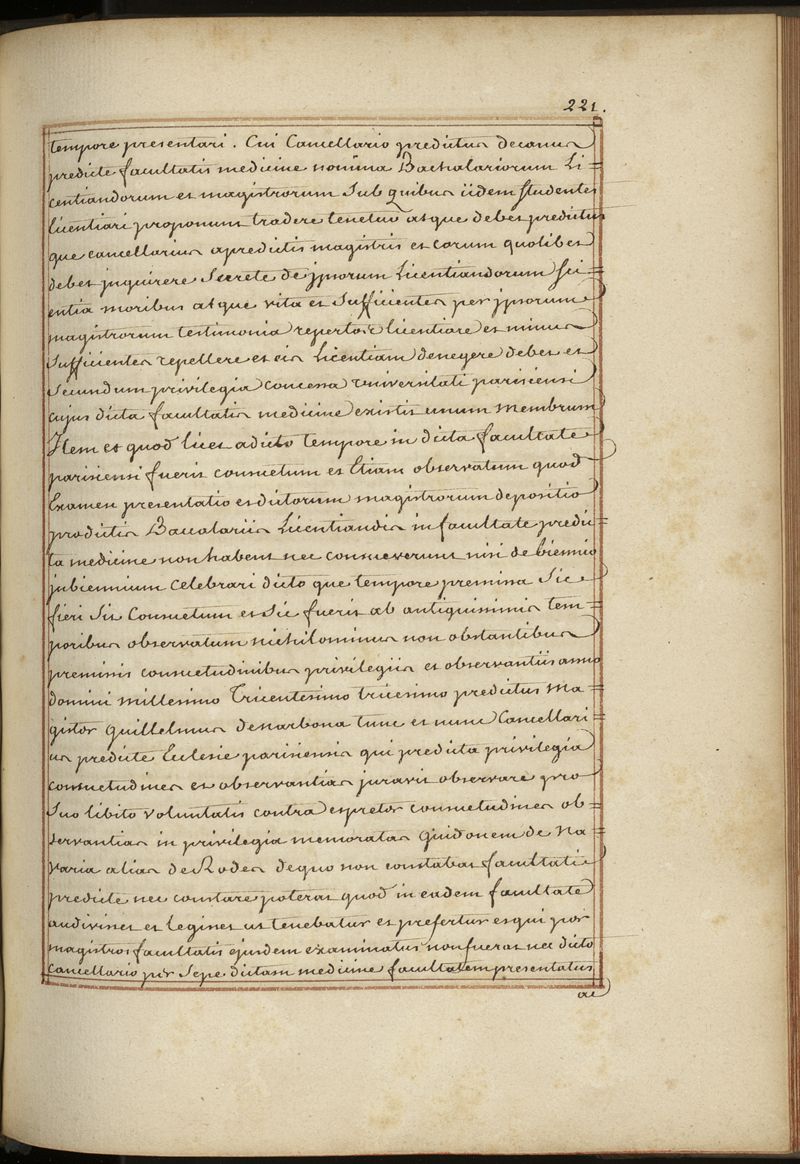 221.
tempore presentari. Cui Cancellario predictus decanus
predicte facultatis medicine nomina Bachalariorum Li=
centiandorum et magistrorum Sub quibus iidem studentes
licentiari proponunt tradere tenetur atque debet predictus
que cancellarius apredictis magistris et eorum quolibet
debet inquirere Secrete de ipsorum Licentiandorum sci=
entia moribus atque vita et Sufficientes per ipsorum
magistrorum testimonia repertos licentiare et minus
Sufficientes repellere et eis Licentiam denegere debet et
Secundum privilegia concessa Universitati parisiensi
cujus dicta facultatis medicine existit unum membrum
Item et quod licet adicto tempore in dicta facultate
parisiensi fuerit consuetum et Etiam observatum quod
Examen presentatio et dictorum magistrorum depositio
pro dictis Bacalariis Licentiandis in facultate predic
ta medicine non habent nec consueverunt nisi de biennio
in biennium celebrari dicto que tempore premissa Sic
fieri Sit Consuetum et Sic fuerit ab antiquissimis tem=
poribus observatum nichilominus non obstantibus
premissis consuetudinibus privilegiis et observantiis anno
domini millesimo Tricentesimo tricesimo predictus Ma=
gister Guillelmus de narbona tunc et nunc Cancellari=
us predicte Eclesie parisiensis qui predicta privilegia
consuetudines et observantias juravit observare pro
Suo libito voluntatis contra et preter consuetudines ob=
servantias in privilegia memoratas Guidonem de Na=
varia alias de Rodes de quo non constabat facultati
predicte nec constare poterat quod in eadem facultate
audivisset et Legisset ut tenebatur et prefertur et qui per
magistros facultatis ejusdem examinatus non fuerat nec dicto
Cancellario per Sepe dictam medicine facultatem presentatus
ac